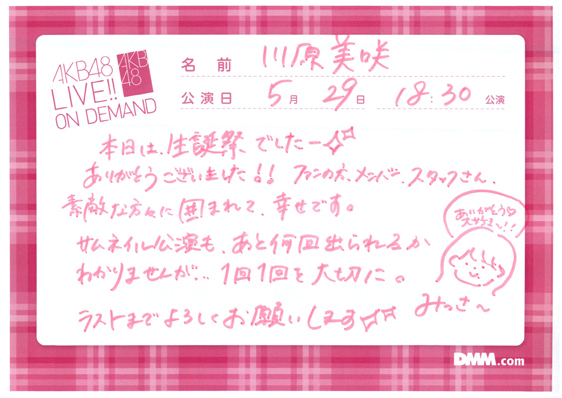 AKB48
LIVE!!
ON DEMAND
AKB
48
名前 川原美咲
公演日 5月 29日 18:30 公演
本日は、生誕祭でしたー
ありがとうございました!! ファンの方、メンバー、スタッフさん、
素敵な方々に囲まれて、幸せです。
サムネイル公演も、あと何回出られるか
わかりませんが... 1回1回を大切に。
ラストまでよろしくお願いします
ありがとう
大好き〜!!
みっさ〜
DMM.com